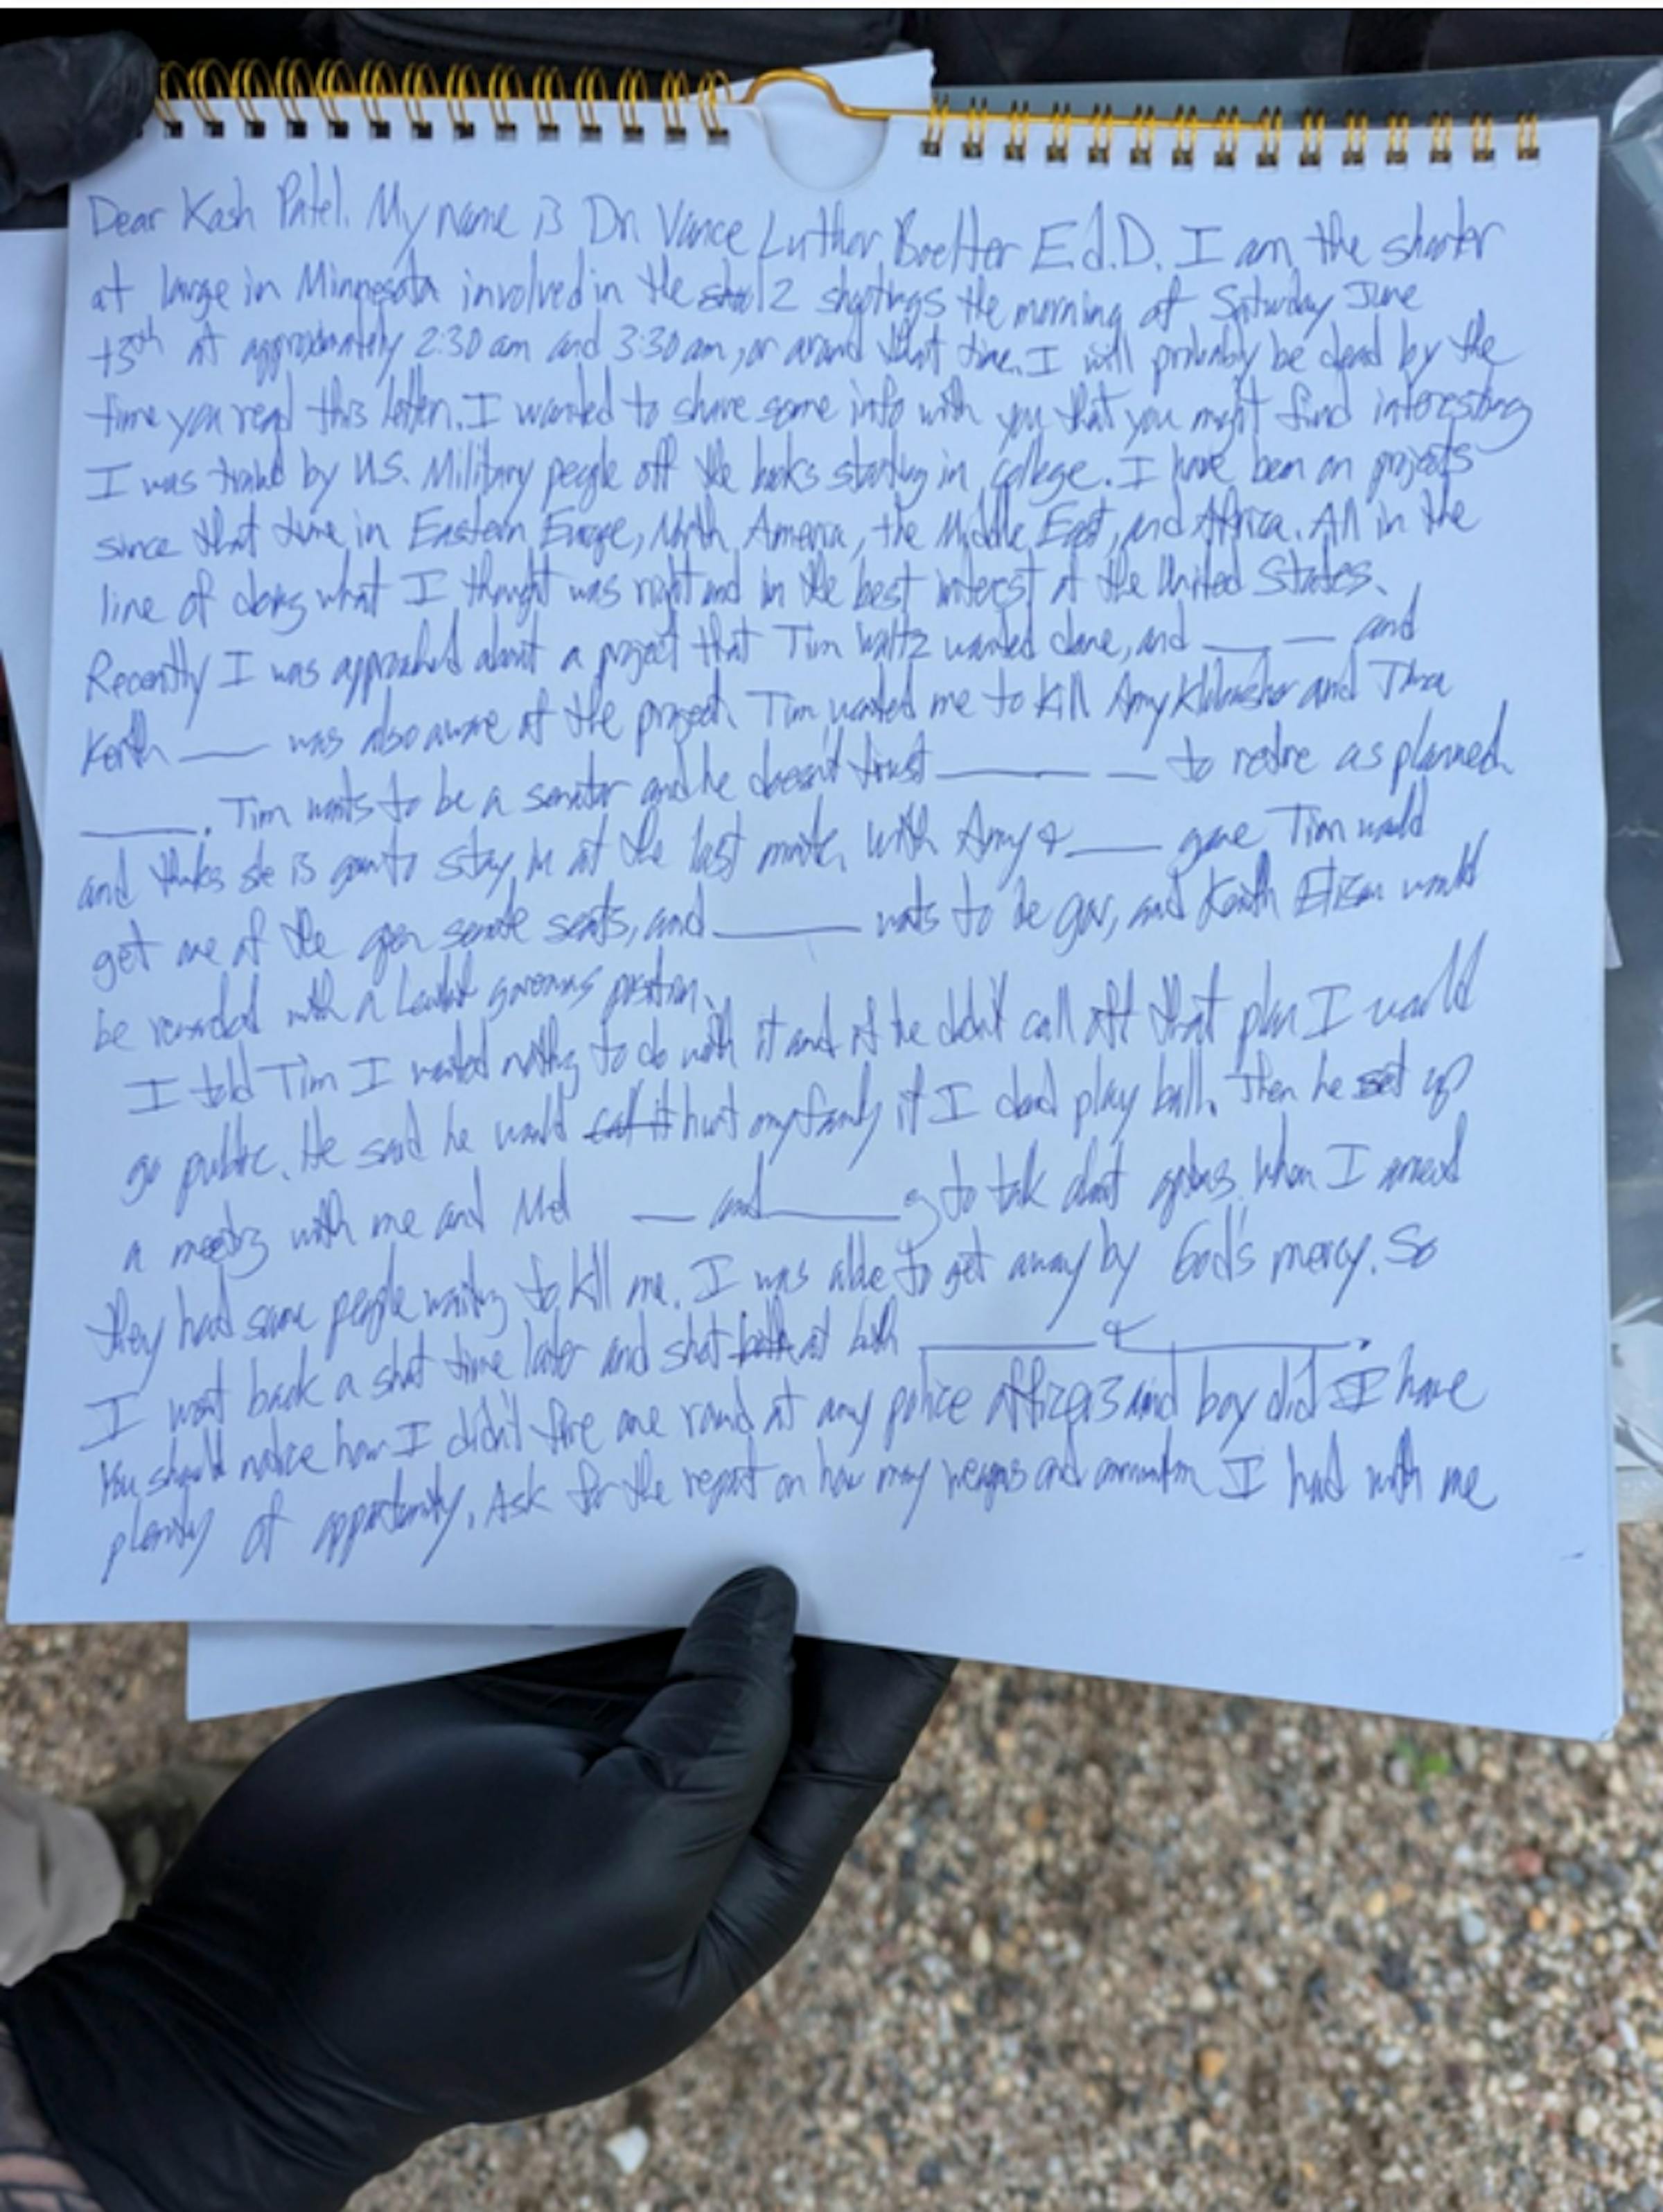 Dear Kash Patel. My name is Dr. Vance Luther Boelter Ed.D. I am the shooter
at large in Minnesota involved in the 2 shootings the morning of Saturday June
13th at approximately 2:30 am and 3:30 am, or around that time. I will probably be dead by the
time you read this letter. I wanted to share some info with you that you might find interesting
I was trained by U.S. Military people off the books starting in college. I have been on projects
since that time in Eastern Europe, North America, the Middle East, and Africa. All in the
line of doing what I thought was right and in the best interest of the United States.
Recently I was approached about a project that Tim Waltz wanted done, and ____ __ and
Keith ____ was also aware of the project. Tim wanted me to kill Amy Klobuchar and
_____. Tim wants to be a senator and he doesn't trust ______ __ to retire as planned
and thinks she is goin to stay in at the last minute. With Amy & ____ gone Tim would
get one of the open senate seats, and ______ wants to be gov, and Keith would
be rewarded with a position.
I told Tim I wanted nothing to do with it and if he didn't call off that plan I would
go public. He said he would call it hurt my family if I play ball. Then he set up
a meeting with me and ___ and ______ to talk about. When I arrived
they had some people waiting to kill me. I was able to get away by God's mercy. So
I went back a short time later and shot both at both ________ & ________.
You should notice how I didn't fire one round at any police officers and boy did I have
plenty of opportunity. Ask for the report on how many weapons and ammunition I had with me